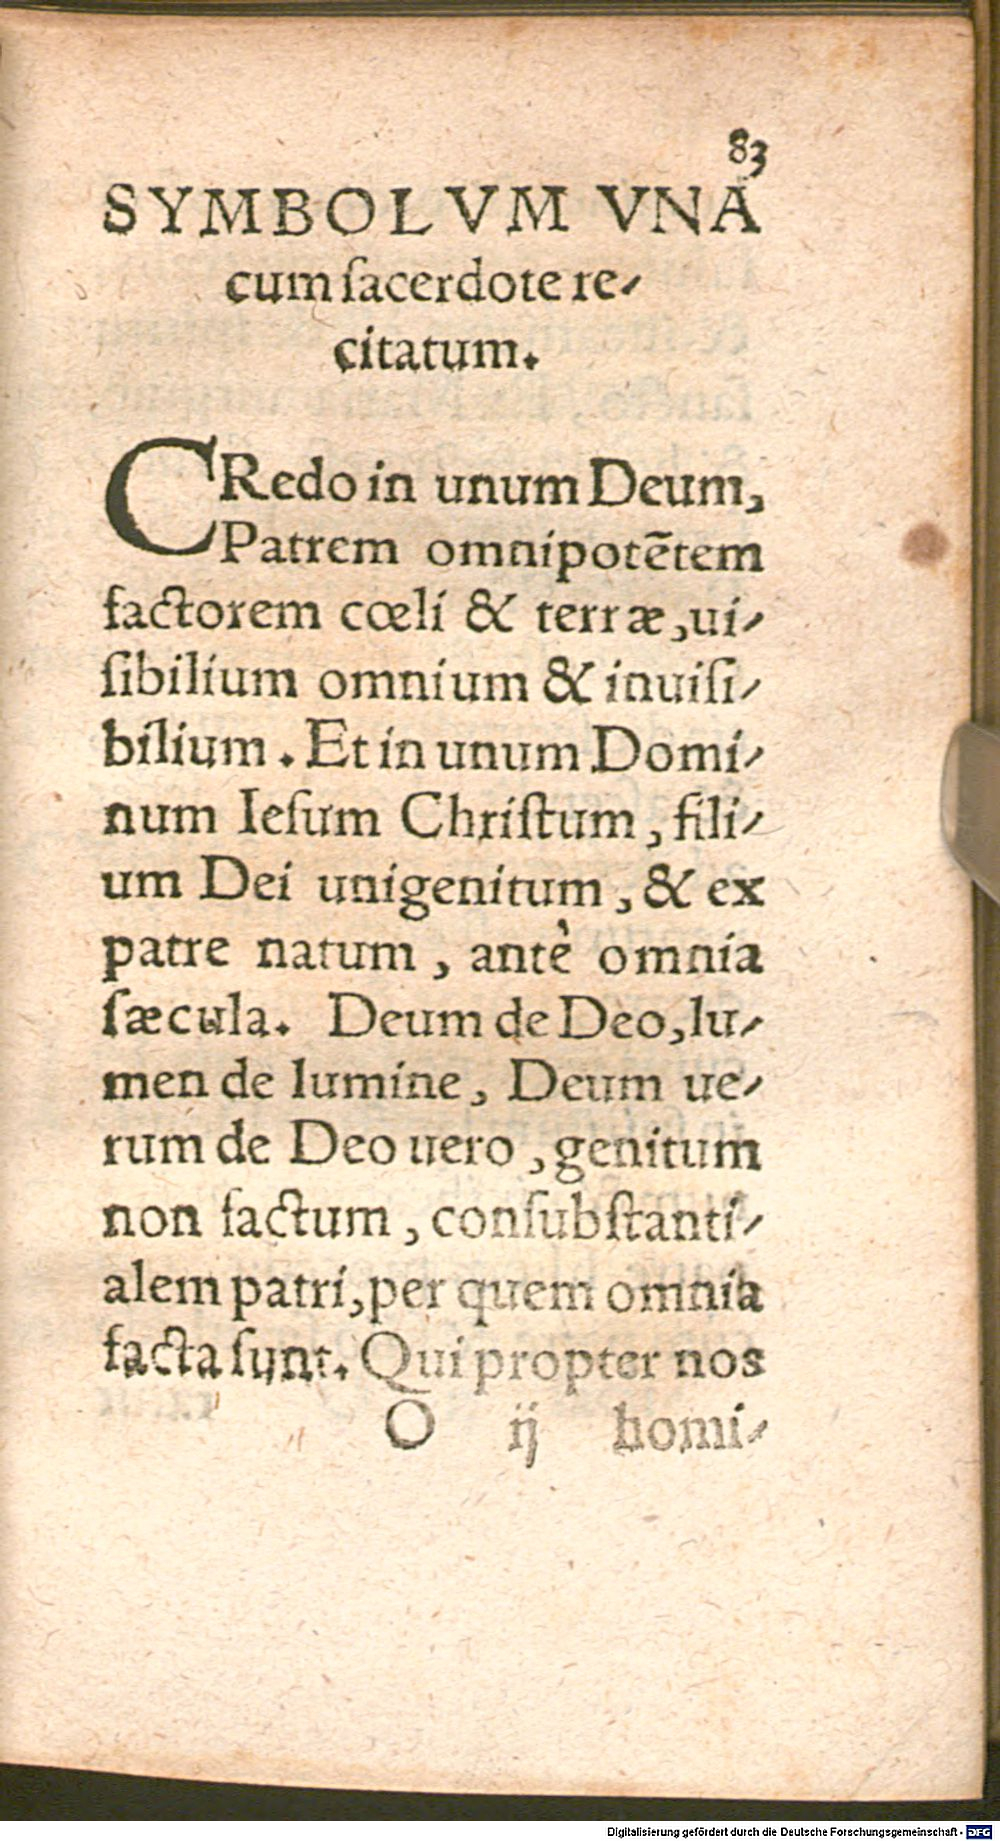 83
SYMBOLVM VNÀ
cum ſacerdote re⸗
citatum.
CRedo in unum Deum,
Patrem omnipotētem
factorem cœli & terræ, ui⸗
ſibilium omnium & inuiſi⸗
bilium. Et in unum Domi⸗
num Ieſum Chriſtum, fili⸗
um Dei unigenitum, & ex
patre natum, antè omnia
ſæcula. Deum de Deo, lu⸗
men de lumine, Deum ue⸗
rum de Deo uero, genitum
non factum, conſubſtanti⸗
alem patri, per quem omnia
facta ſunt. Qui propter nos
O ij homi⸗
Digitalisierung gefördert durch die Deutsche Forschungsgemeinschaft - DFG